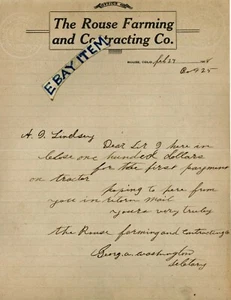 OFFICE OF
The Rouse Farming
and Contracting Co.
ROUSE, COLO., feb 27
Box 25
EBAY ITEM
A. G. Lindsey
Dear Sir I here in
close one hundred dollars
for the first payment
on tractor
hoping to here from
you in return mail
yours very truly
the Rouse farming and contracting co
Georg. a. washington